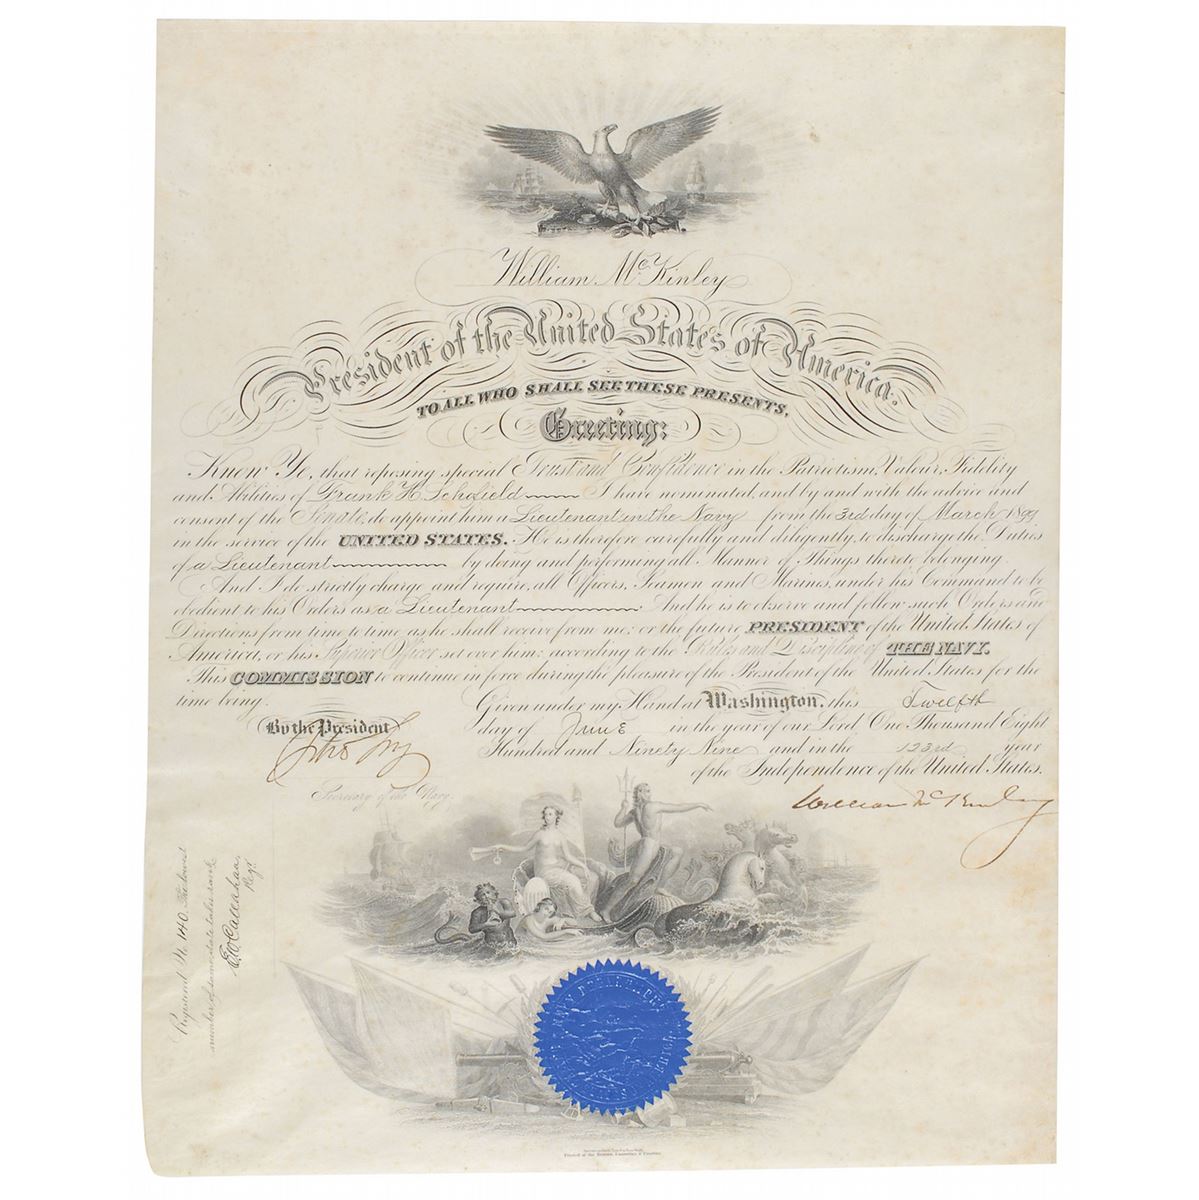 William McKinley
President of the United States of America.
TO ALL WHO SHALL SEE THESE PRESENTS,
Greeting:
Know Ye, that reposing special Trust and Confidence in the Patriotism, Valour, Fidelity
and Abilities of Frank H. Schofield I have nominated, and by and with the advice and
consent of the Senate, do appoint him a Lieutenant in the Navy from the 3rd day of March 1899
in the service of the UNITED STATES. He is therefore carefully and diligently, to discharge the Duties
of a Lieutenant by doing and performing all Manner of Things thereto belonging.
And I do strictly charge and require, all Officers, Seamen and Marines, under his Command to be
obedient to his Orders as a Lieutenant And he is to observe and follow such Orders and
Directions from time to time as he shall receive from me; or the future PRESIDENT of the United States of
America, or his Superior Officer set over him; according to the Rules and Discipline of THE NAVY.
This COMMISSION to continue in force during the pleasure of the President of the United States for the
time being.
Given under my Hand at Washington, this Twelfth
day of June in the year of our Lord, One Thousand Eight
Hundred and Ninety Nine and in the 123rd year
of the Independence of the United States.
By the President
Secretary of the Navy.
William McKinley
Registered No. 1140 The lowest
number of same date takes rank
E.W. Callahan,
Regr.